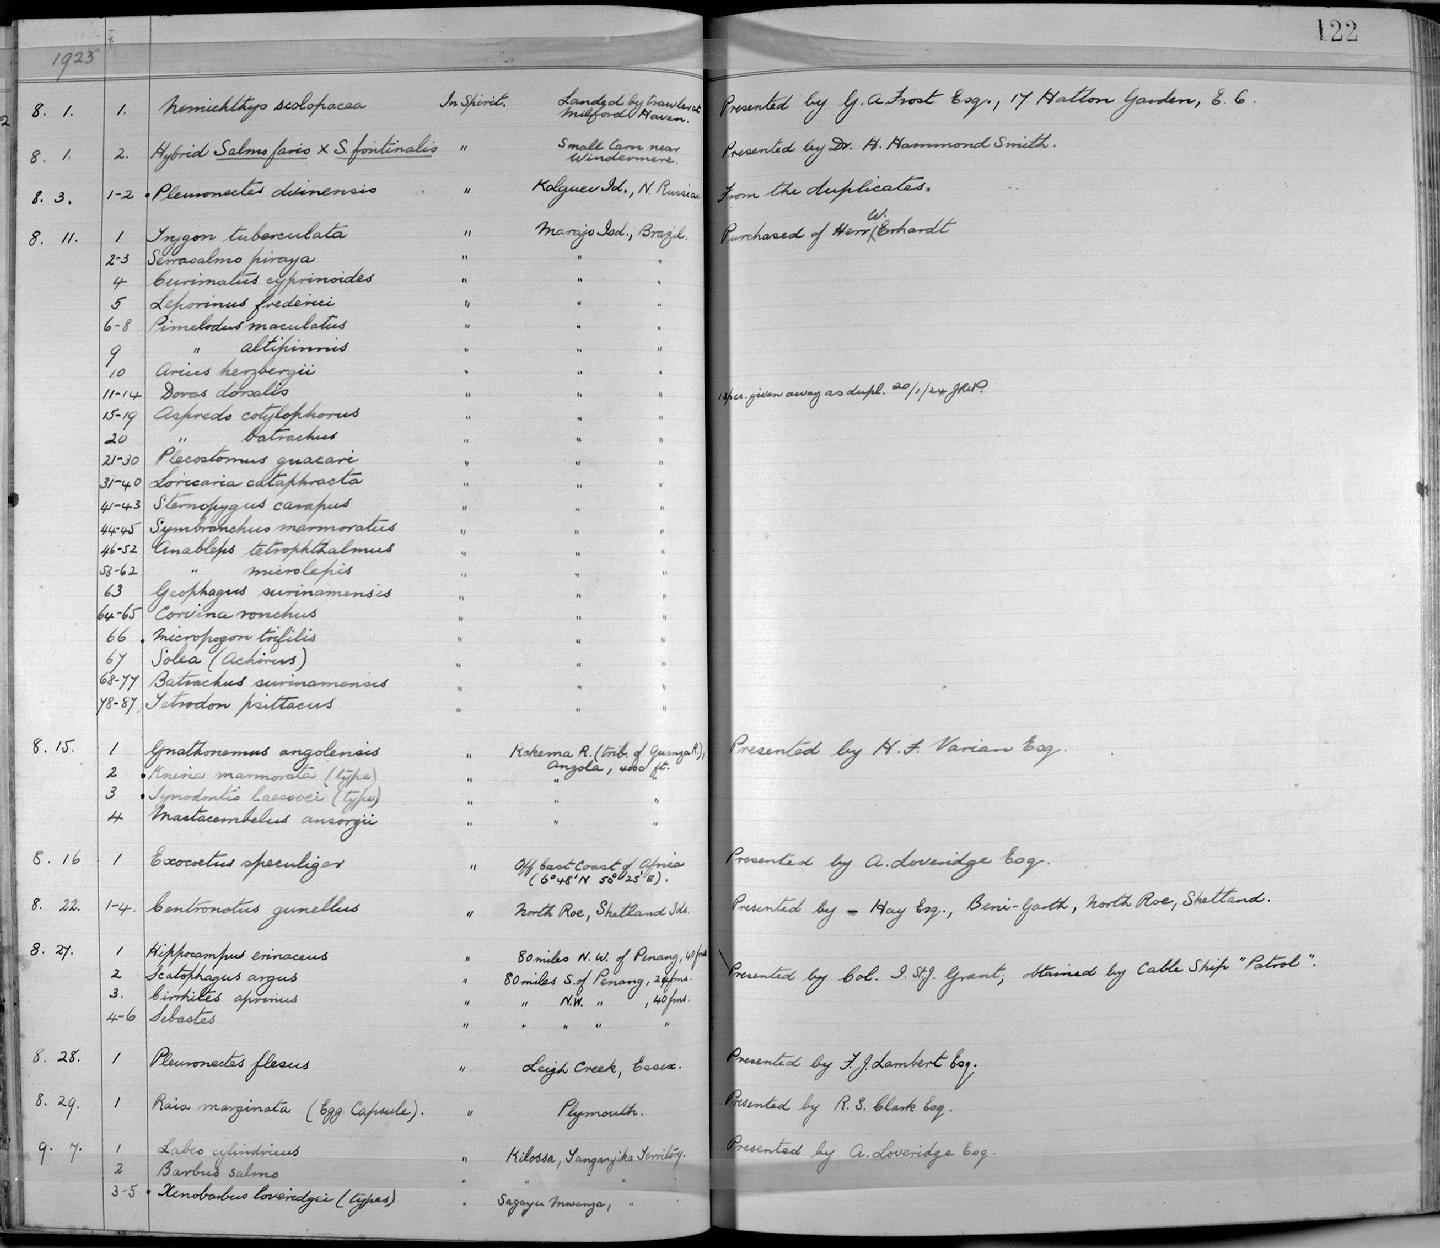 122
1923
8. 1. 1. Nemichthys scolopacea In Spirit. Landed by trawler at Milford Haven. Presented by G. A. Frost Esq., 17 Hatton Garden, E. C.
8. 1. 2. Hybrid Salmo fario × S. fontinalis " Small tarn near Windermere. Presented by Dr. H. Hammond Smith.
8. 3. 1-2 • Pleuronectes dvinensis " Kolguev Id., N. Russia From the duplicates.
8. 11. 1 Trygon tuberculata " Marajo Isd., Brazil. Purchased of Herr W. Erhardt
2-3 Serrasalmo piraya " " "
4 Curimatus cyprinoides " " "
5 Leporinus frederici " " "
6-8 Pimelodus maculatus " " "
9 " altipinnis " " "
10 Arius herzbergii " " "
11-14 Doras dorsalis " " " 1 spec. given away as dupl. 20/1/24
15-19 Aspredo cotylophorus " " "
20 " batrachus " " "
21-30 Plecostomus guacari " " "
31-40 Loricaria cataphracta " " "
41-43 Sternopygus carapus " " "
44-45 Symbranchus marmoratus " " "
46-52 Anableps tetrophthalmus " " "
53-62 " microlepis " " "
63 Geophagus surinamensis " " "
64-65 Corvina ronchus " " "
66 • Micropogon trifilis " " "
67 Solea (Achirus) " " "
68-77 Batrachus surinamensis " " "
78-87 Tetrodon psittacus " " "
8. 15. 1 Gnathonemus angolensis " Kokema R. (trib. of Quanza R.), Angola, 4000 ft. Presented by H. F. Varian Esq.
2 • Kneria marmorata (type) " " "
3 • Synodontis laessoei (type) " " "
4 Mastacembelus ansorgii " " "
8. 16 1 Exocoetus speculiger " Off East Coast of Africa (6° 48' N 55° 25' E). Presented by A. Loveridge Esq.
8. 22. 1-4. Centronotus gunellus " North Roe, Shetland Ids. Presented by – Hay Esq., Beni-Garth, North Roe, Shetland.
8. 27. 1 Hippocampus erinaceus " 80 miles N. W. of Penang, 40 fms
2 Scatophagus argus " 80 miles S. of Penang, 24 fms. Presented by Col. I. St. J. Grant, obtained by Cable Ship "Patrol".
3. Cirrhites aprinus " " N.W. " , 40 fms.
4-6 Sebastes " " " " "
8. 28. 1 Pleuronectes flesus " Leigh Creek, Essex. Presented by F. J. Lambert Esq.
8. 29. 1 Raia marginata (Egg Capsule). " Plymouth. Presented by R. S. Clark Esq.
9. 7. 1 Labeo cylindricus " Kilossa, Tanganyika Territory. Presented by A. Loveridge Esq.
2 Barbus salmo " " "
3-5 • Xenobarbus loveridgei (types) " Sagayu Mwanza, "